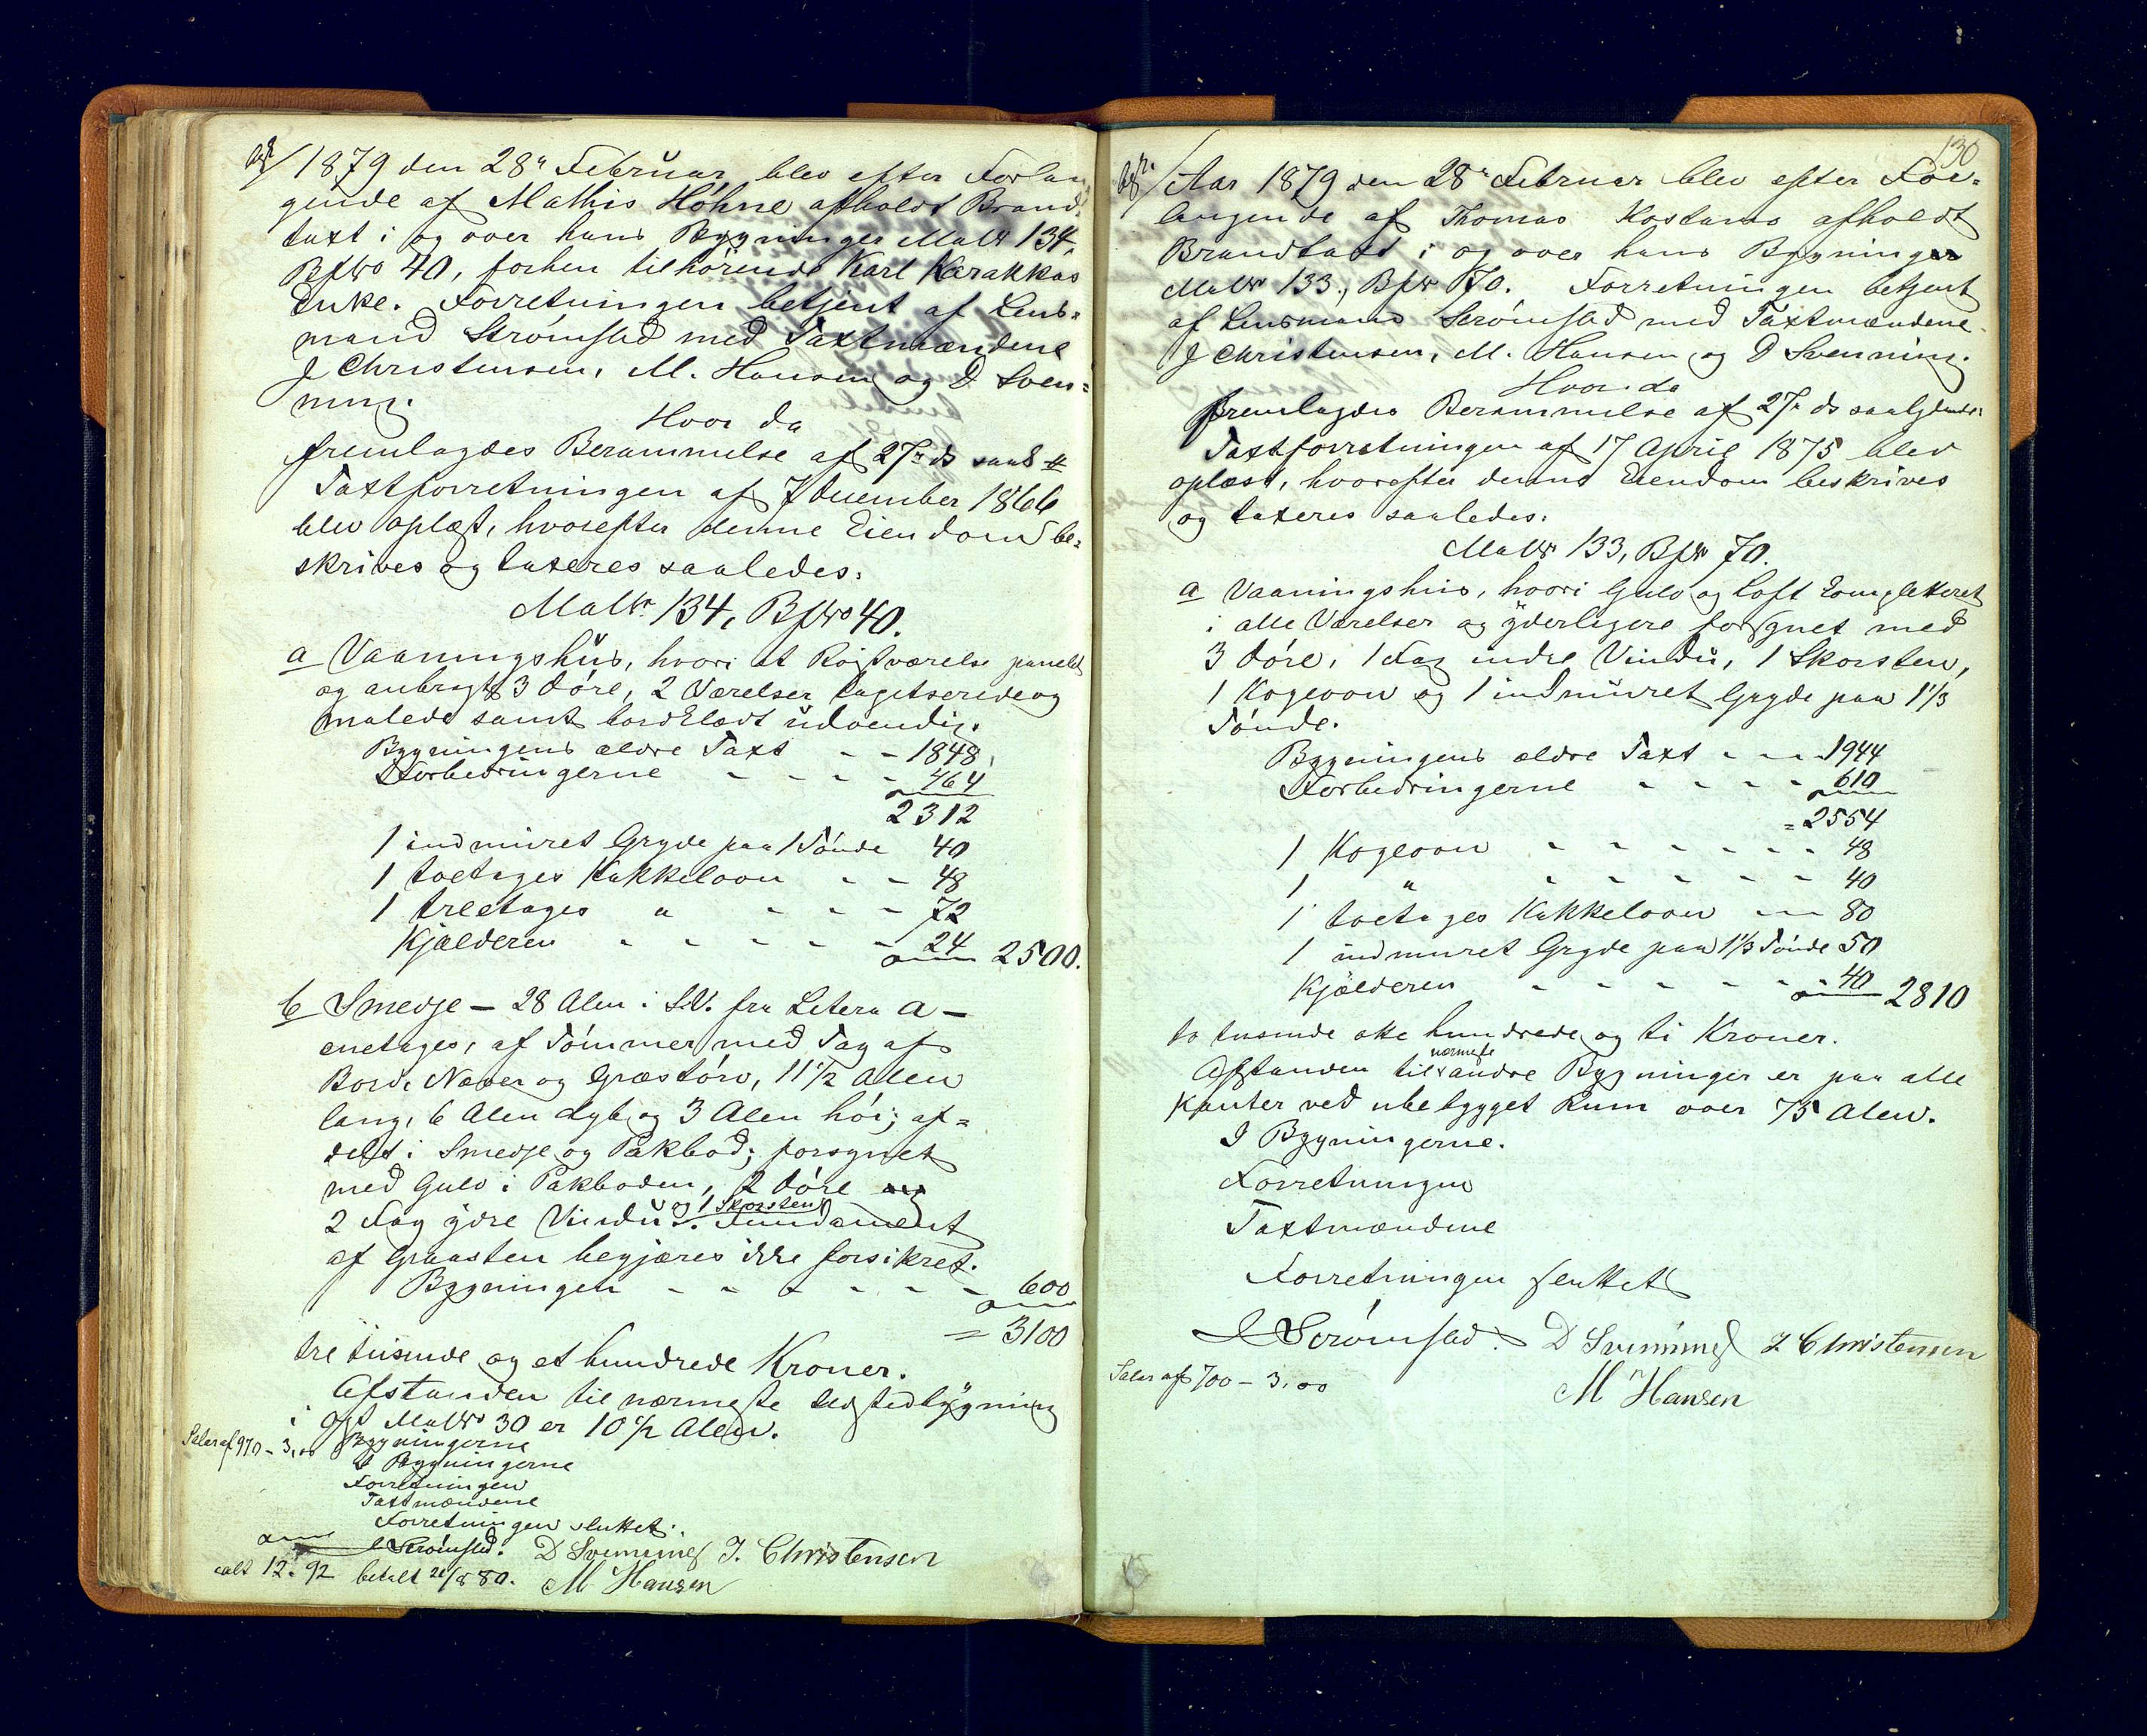 1879 den 28" Februar blev efter Forlan
gende af Mathis Höhne afholdt Brand-
taxt i og over hans Bygninger MatNr 134
BpNo 40, forhen tilhørende Karl Karakkas
Enke. Forretningen betjent af Lens-
mand Strømsted med Taxtmændene
J Christensen, M. Hansen og D Sven-
ning.
Hvor da
fremlagdes Berammelse af 27" ds saal #
Taxtforretningen af 7 December 1866
blev oplæst, hvorefter denne Eiendom be-
skrives og taxeres saaledes:
MatNr. 134, BpNo 40.
a Vaaningshus, hvori et Røstværelse panelet
og anbragt 3 Døre, 2 Værelser tapetserede og
malede samt bordklædt udvendig.
Bygningens ældre Taxt - - 1848
Forbedringerne - - - - 464
2312
1 indmuret Gryde paa 1 Tønde 40
1 toetages Kakkeloon - - 48
1 treetages " - - - 72
Kjælderen - - - - - 24 2500.
b Smedje - 28 Alen i S.V. fra Litera a -
enetages, af Tømmer med Tag af
Bord, Næver og Græstørv, 11 1/2 Alen
lang, 6 Alen dyb og 3 Alen høi; af-
delt i Smedje og Pakbod; forsynet
med Gulv i Pakboden, 2 Døre og
2 Fag ydre Vindu og 1 Skorsten. Fundament
af Graasten begjæres ikke forsikret.
Bygningen - - - - - - 600
= 3100
tre tusinde og et hundrede Kroner.
Afstanden til nærmeste Ildstedbygning
i Opl MatNr 30 er 10 1/2 Alen.
Salar af 970 - 3,00 Bygningerne
I Bygningerne
Forretningen
Taxtmændene
Forretningen sluttet.
Strømsted. D Svenning J. Christensen
calt 12. 92 betalt 21/8 80. M Hansen
130
Aar 1879 den 28" Februar blev efter For-
langende af Thomas Kostamo afholdt
Brandtaxt i og over hans Bygninger
MatNr 133, BpNr 70. Forretningen betjent
af Lensmand Strømsted med Taxtmændene
J Christensen, M. Hansen og D Svenning.
Hvor da
fremlagdes Berammelse af 27" ds saalydende:
Taxtforretningen af 17 April 1875 blev
oplæst, hvorefter denne Eiendom beskrives
og taxeres saaledes:
MatNr 133, BpNr 70.
a Vaaningshus, hvori Gulv og Loft kompletteret
i alle Værelser og yderligere forsynet med
3 Døre, 1 Fag indre Vindu, 1 Skorsten,
1 Kogeovn og 1 indmuret Gryde paa 1 1/3
Tønde.
Bygningens ældre Taxt - - - 1944
Forbedringerne - - - - 610
= 2554
1 Kogeoon - - - - - - 48
1 " - - - - - 40
1 toetages Kakkeloon - - 80
1 indmuret Gryde paa 1 1/3 Tønde 50
Kjælderen - - - - - - 40 2810
to tusinde otte hundrede og ti Kroner.
Afstanden til nærmeste andre Bygninger er paa alle
Kanter ved ubebygget Rum over 75 Alen.
I Bygningerne.
Forretningen
Taxtmændene
Forretningen sluttet
Strømsted. D Svenning J Christensen
Salar af 700 - 3,00
M Hansen